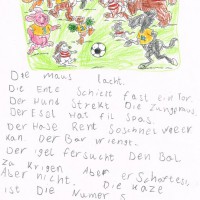 Die maus lacht.
Die Ente Schiest fast ein Tor.
Der Hund Strekt Die Zunge raus.
Der Esel Hat fil Spas.
Der Hase Rent Soschnel weer
kan. Der Bär springt.
Der igel fersucht Den Bal
zu krigen Aber er Schaftes
Aber nicht. Die Kaze
ist Die Numer 5